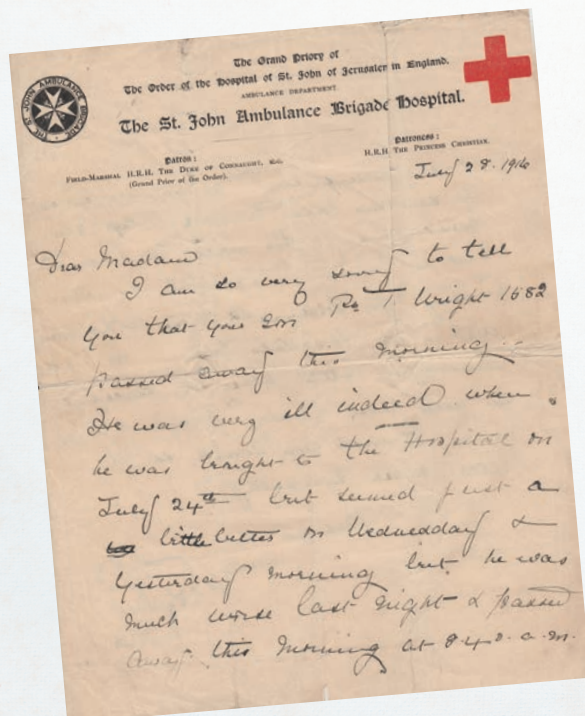 THE ST. JOHN AMBULANCE BRIGADE
The Grand Priory of
The Order of the Hospital of St. John of Jerusalem in England.
AMBULANCE DEPARTMENT.
The St. John Ambulance Brigade Hospital.
Patron:
FIELD-MARSHAL H.R.H. THE DUKE OF CONNAUGHT, K.G.
(Grand Prior of the Order).
Patroness:
H.R.H. THE PRINCESS CHRISTIAN.
July 28. 1916
Dear Madam
I am so very sorry to tell
you that your son Pte T. Wright 1682
passed away this morning.
He was very ill indeed when
he was brought to the Hospital on
July 24th but seemed just a
little better on Wednesday &
yesterday morning but he was
much worse last night & passed
away this morning at 8.40 a.m.